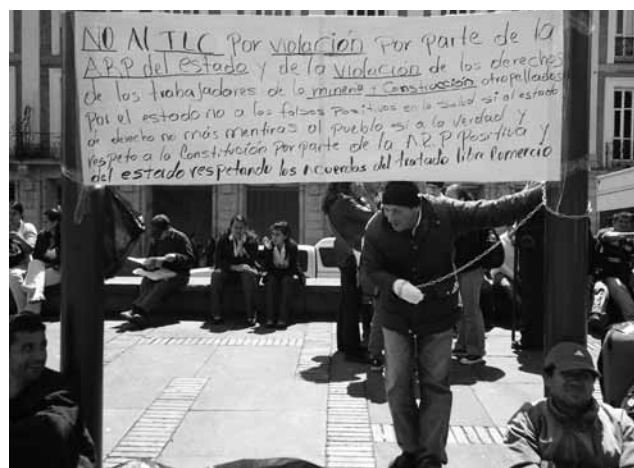 NO Al TLC Por violación Por parte de la
A.R.P del estado y de la violación de los derechos
de los trabajadores de la mineria y Construcción atropellados
Por el estado no a los falsos Positivos en la salud si al estado
de derecho no más mentiras al Pueblo si a la verdad y
respeto a la Constitución por parte de la A.R.P Positiva y
del estado respetando los acuerdos del tratado libre Comercio